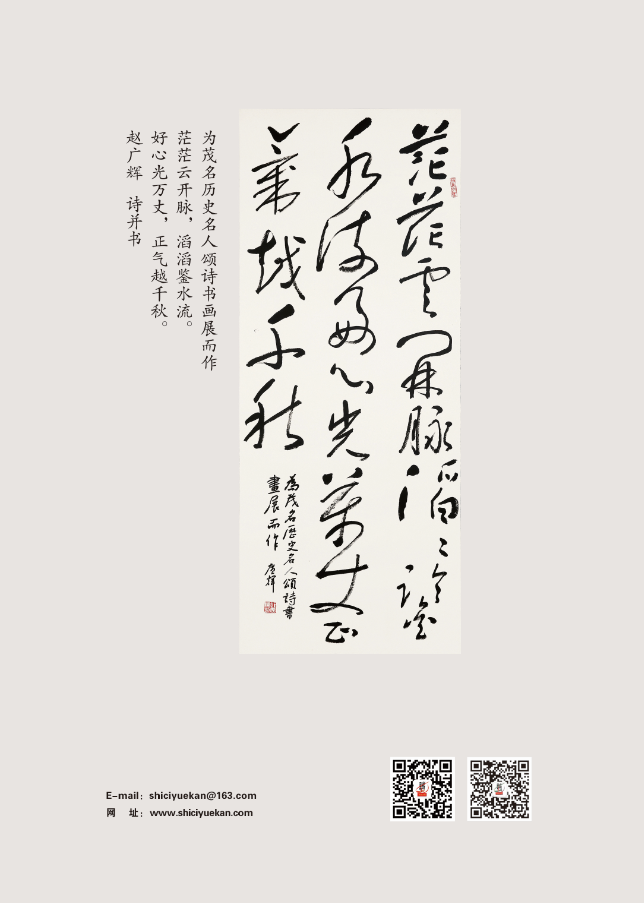 茫茫雲開脉滔〻鑒
水流好心光萬丈正
氣越千秋
為茂名歷史名人頌詩書
畫展而作 廣輝
为茂名历史名人颂诗书画展而作
茫茫云开脉，滔滔鉴水流。
好心光万丈，正气越千秋。
赵广辉 诗并书
E-mail：shiciyuekan@163.com
网 址：www.shiciyuekan.com